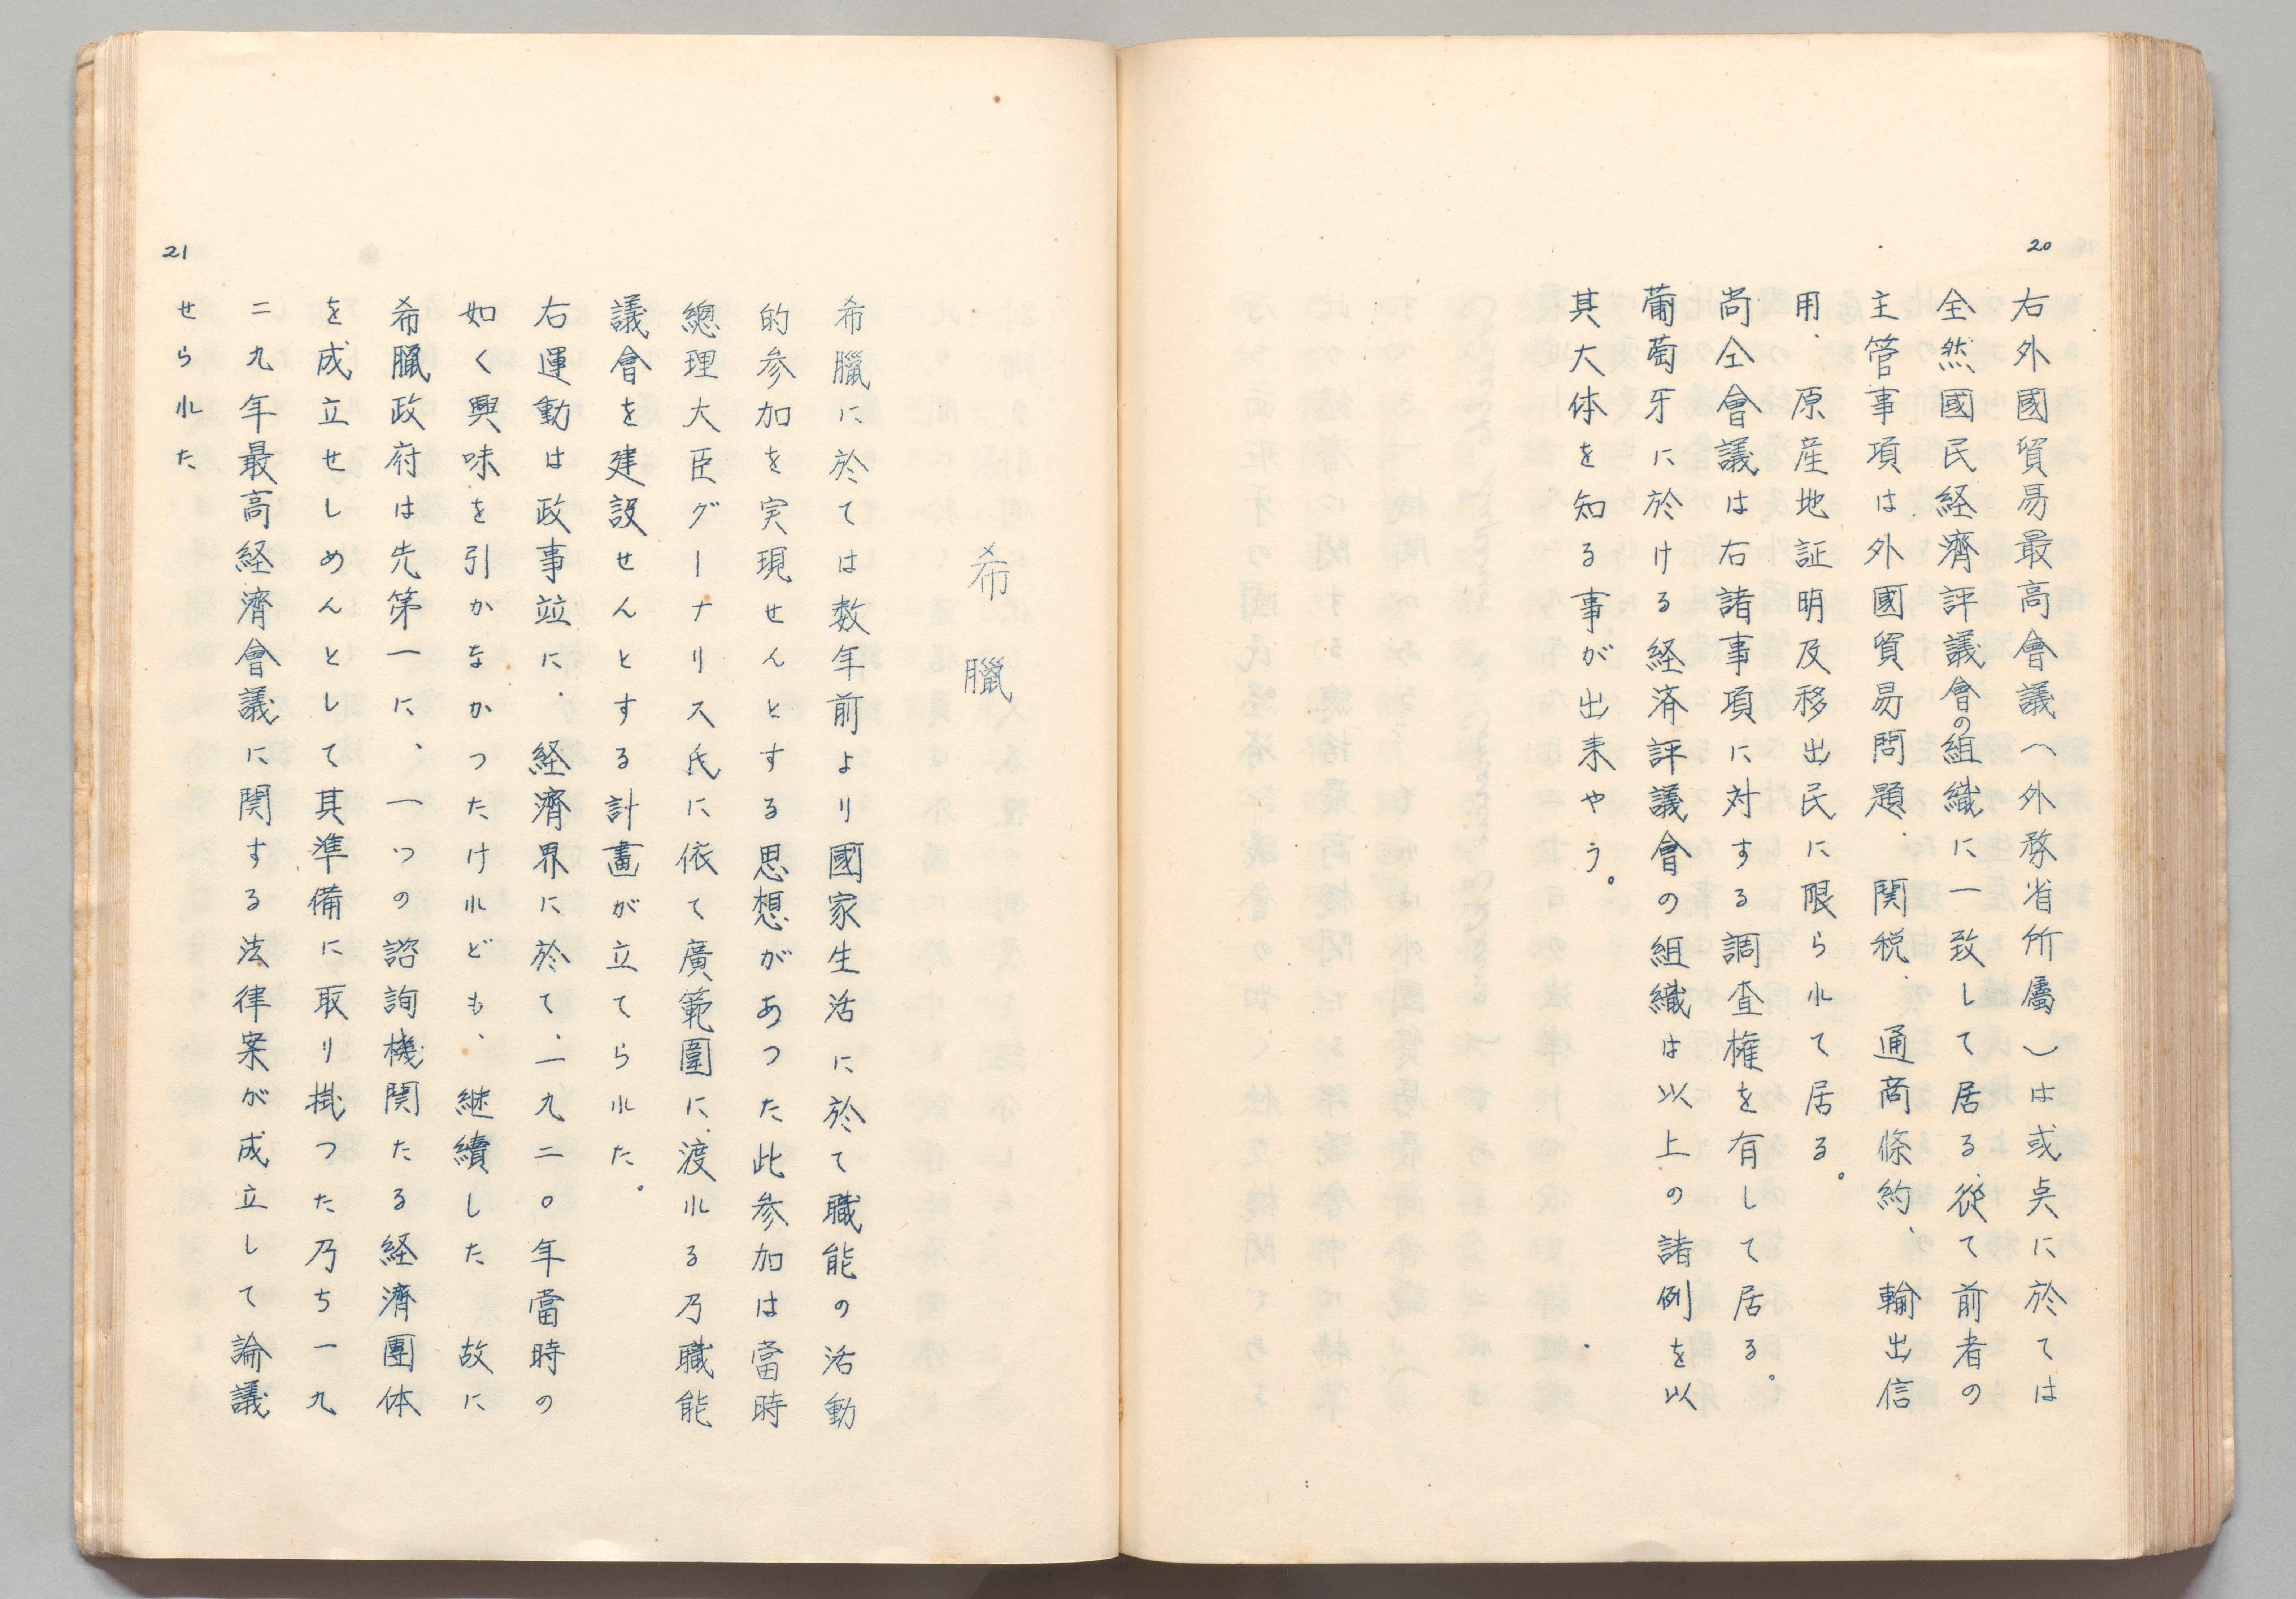 20
右外國貿易最高會議(外務省所屬)は或点に於ては
全然國民経濟評議會の組織に一致して居る、従て前者の
主管事項は外國貿易問題、関税、通商條約、輸出信
用、原産地証明及移出民に限られて居る。
尚仝會議は右諸事項に対する調査権を有して居る。
葡萄牙に於ける経済評議會の組織は以上の諸例を以
其大体を知る事が出来やう。
希臘
希臘に於ては数年前より國家生活に於て職能の活動
的参加を実現せんとする思想があつた此参加は當時
總理大臣グーナリス氏に依て廣範圍に渡れる乃職能
議會を建設せんとする計畫が立てられた。
右運動は政事竝に、経濟界に於て、一九二〇年當時の
如く興味を引かなかつたけれども、継續した 故に
希臘政府は先第一に、一つの諮詢機関たる経濟團体
を成立せしめんとして其準備に取り掛つた乃ち一九
二九年最高経濟會議に関する法律案が成立して論議
せられた
21